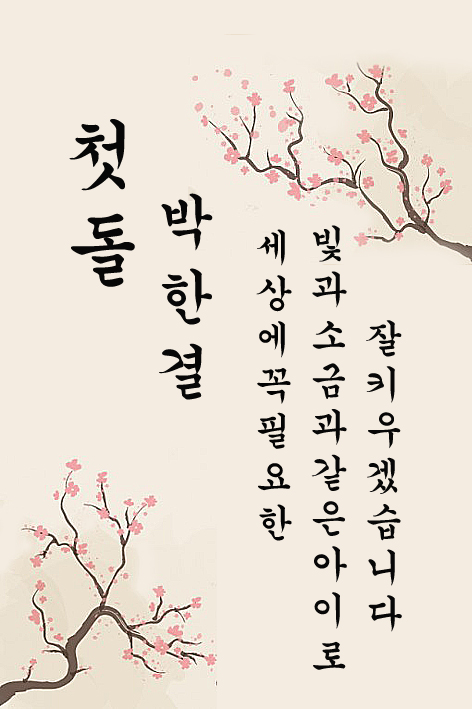 첫돌
박한결
세상에꼭필요한
빛과소금과같은아이로
잘키우겠습니다